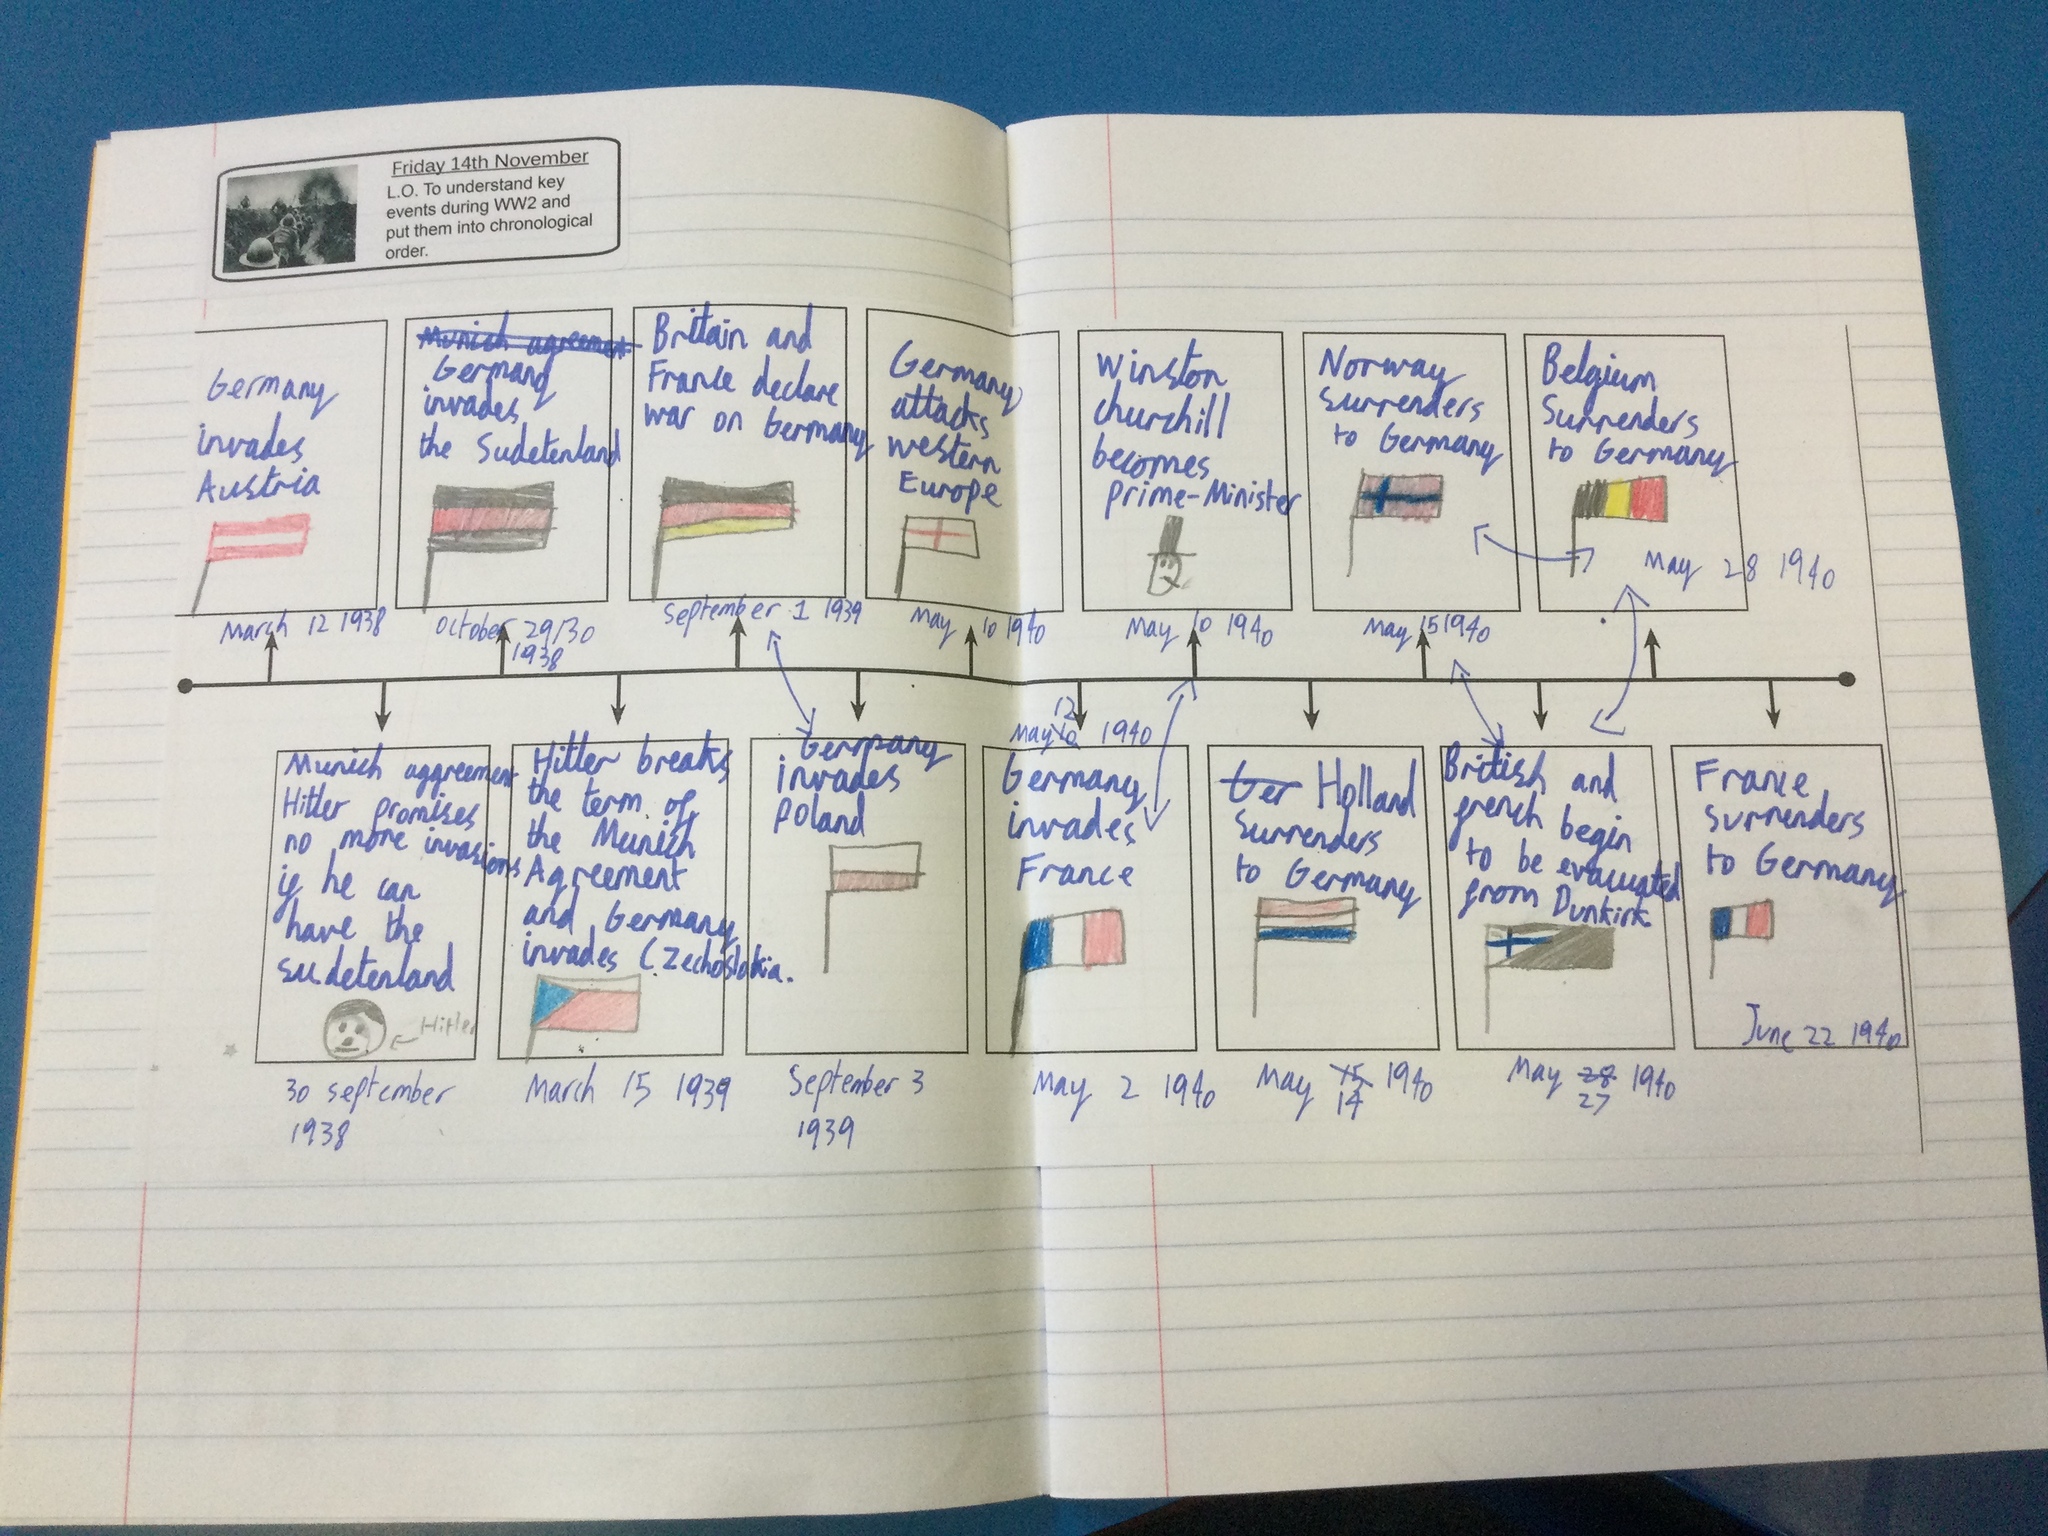 Friday 14th November
L.O. To understand key
events during WW2 and
put them into chronological
order.
Germany
invades
Austria
March 12 1938
Munich agreement
Germany
invades
the Sudetenland
October 29/30
1938
Britain and
France declare
war on Germany
September 1 1939
Germany
attacks
western
Europe
May 10 1940
Winston
churchill
becomes
prime-Minister
May 10 1940
Norway
surrenders
to Germany
May 15 1940
Belgium
Surrenders
to Germany
May 28 1940
Munich aggreement
Hitler promises
no more invasions
if he can
have the
sudetenland
Hitler
30 september
1938
Hitler breaks
the term of
the Munich
Agreement
and Germany
invades Czechoslokia.
March 15 1939
Germany
invades
poland
September 3
1939
12
May 10 1940
Germany
invades
France
May 2 1940
Ger Holland
surrenders
to Germany
May 15 1940
14
British and
french begin
to be evacuated
from Dunkirk
May 28 1940
27
France
surrenders
to Germany
June 22 1940